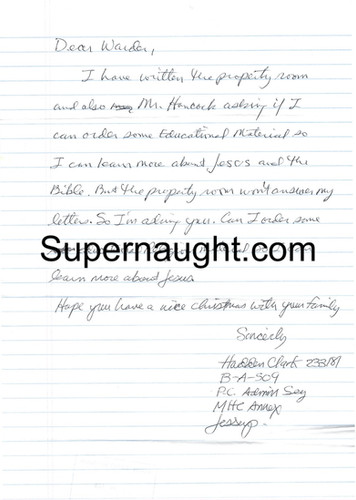 Dear Warden,
I have written the property room
and also Mr. Hancock asking if I
can order some Educational Material so
I can learn more about Jesus and the
Bible. But the property room won't answer my
letters. So I'm asking you. Can I order some
Supernaught.com
learn more about Jesus.
Hope you have a nice christmas with your family
Sincerly
Hadden Clark 233181
B-A-509
P.C. Admin Seg
MHC Annex
Jessup.